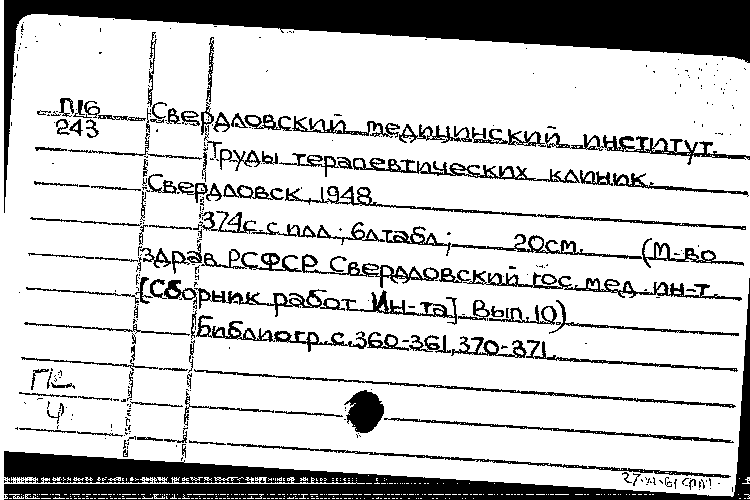 П16
243
Свердловский медицинский институт.
Труды терапевтических клиник.
Свердловск, 1948.
374с. с илл.; 6л.табл.; 20см. (М-во
здрав. РСФСР. Свердловский гос. мед. ин-т.
[Сборник работ Ин-та]. Вып.10)
Библиогр. с. 360-361, 370-371.